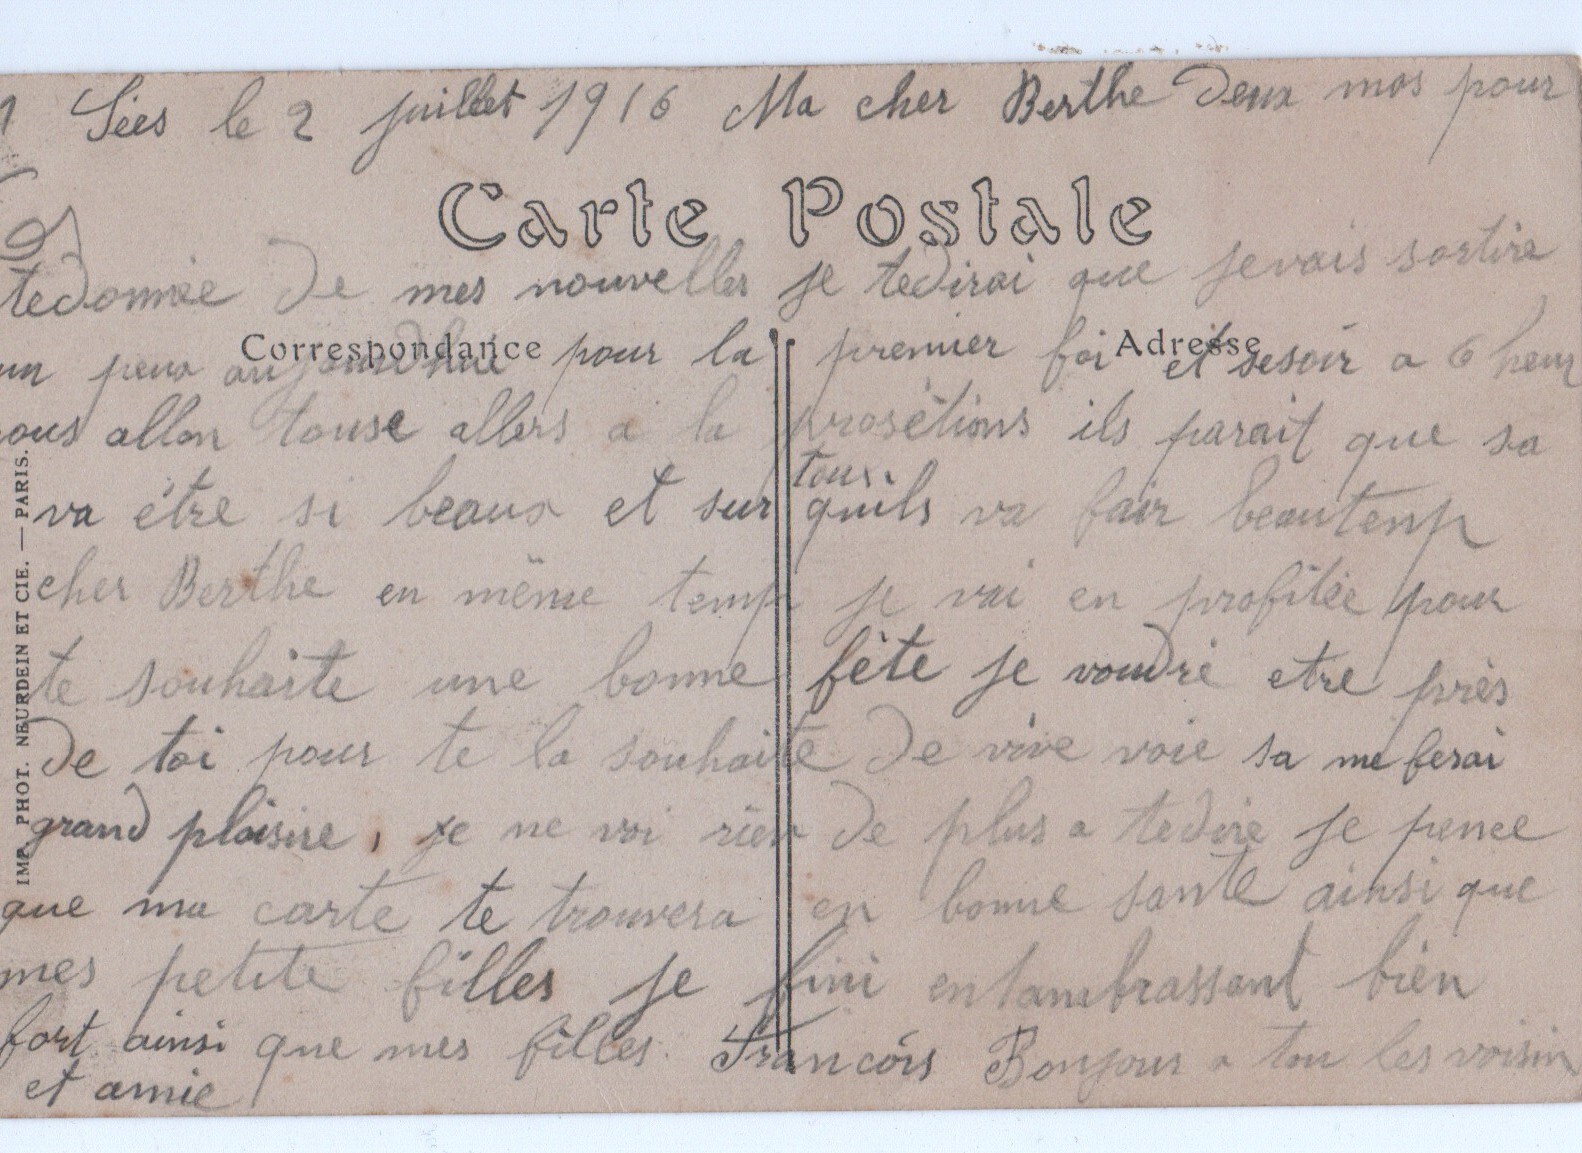 Sées le 2 juillet 1916 Ma cher Berthe Deux mos pour
Carte Postale
tedonnée De mes nouvelles je tedirai que jevais sortire
Correspondance
Adresse
un peux aujourdhui pour la premier foi et sesoir a 6 heur
nous allon touse allers a la prosétions ils parait que sa
toux
va étre si beaux et sur quils va fair beautemp
cher Berthe en même temp je vai en profitée pour
te souhaite une bonne fête je voudré etre près
De toi pour te la souhaite De vive voie sa me ferai
grand plaisire, je ne voi rien De plus a tedire je pence
que ma carte te trouvera en bonne sante ainsi que
mes petite filles je fini entambrassant bien
fort ainsi que mes filles. Francóis Bonjour a tou les voisin
et amie
IMP. PHOT. NEURDEIN ET CIE. — PARIS.